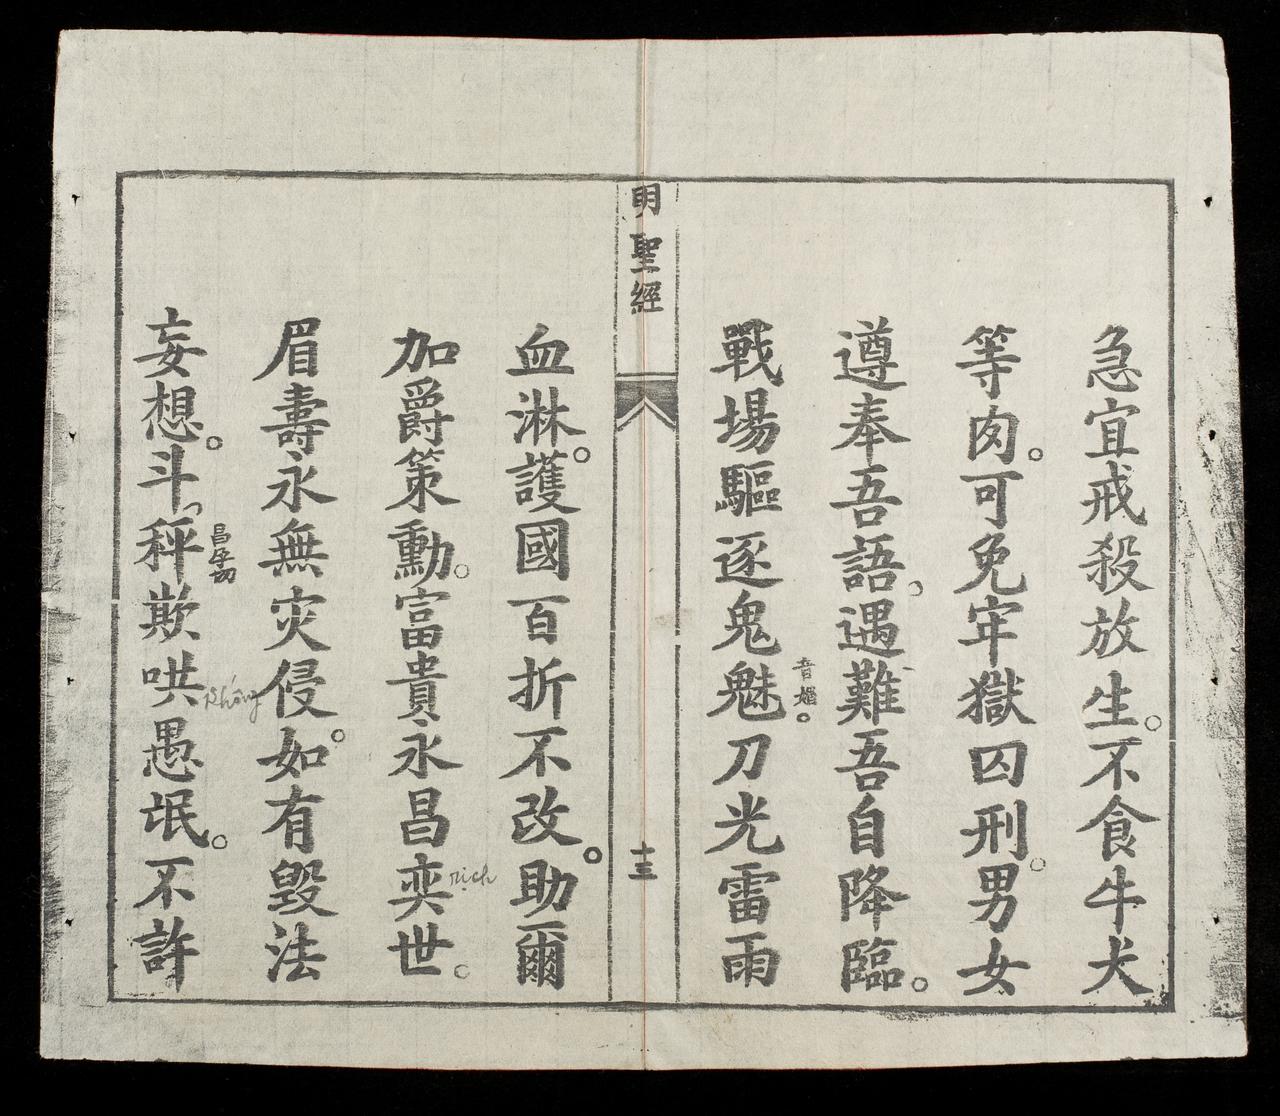 急宜戒殺放生。不食牛犬
等肉。可免牢獄囚刑。男女
遵奉吾語。遇難吾自降臨。
戰場驅逐鬼魅音媚。刀光雷雨
明聖經
十三
血淋。護國百折不改。助爾
加爵策勳。富貴永昌奕世。
rịch
眉壽永無灾侵。如有毀法
妄想。斗秤昌孕切欺哄愚氓。不許
Khống